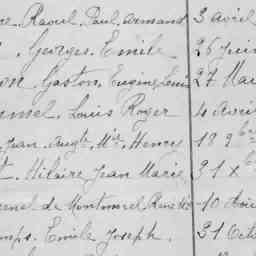 Raoul, Paul, Armand 3 avril
, Georges, Emile 26 Juin
Gaston, Eugène, Louis 27 Mai
, Louis Roger 4 Avril
Jean, Augte Mie, Henry 18 9bre
, Hilaire Jean Marie 31 Xb
de Montmirel René 10 Aoû
mps, Emile Joseph. 31 Octo